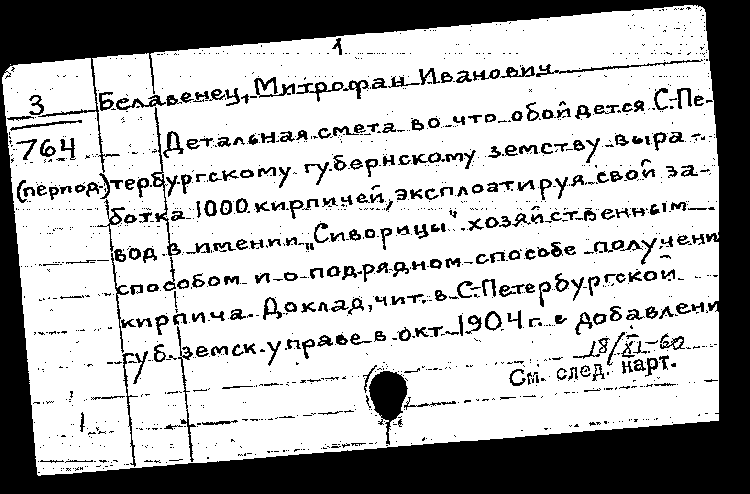 1
3 Белавенец, Митрофан Иванович.
764 Детальная смета во что обойдется С.Пе-
(период.) тербургскому губернскому земству выра-
ботка 1000 кирпичей, эксплоатируя свой за-
вод в имении „Сиворицы" хозяйственным
способом и о подрядном способе получени
кирпича. Доклад, чит. в С.Петербургской
губ. земск. управе в окт. 1904 г. с добавлени
18/XI-60
См. след. карт.